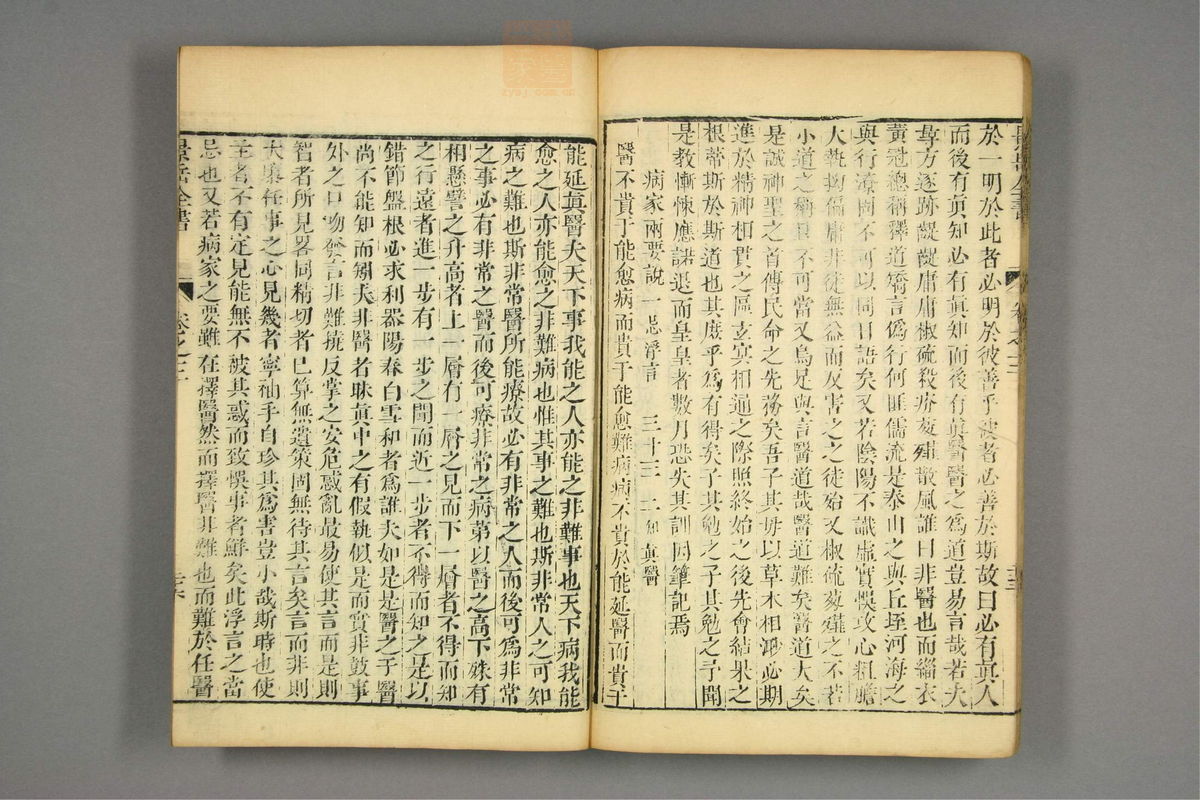 於一明於此者必明於彼善乎彼者必善於斯故曰必有眞人
而後有眞知必有眞知而後有眞醫醫之爲道豈易言哉若夫
尋方逐跡齪齪庸庸椒硫殺疥葱薤散風誰曰非醫也而緇衣
黃冠總稱釋道矯言僞行何匪儒流是泰山之與丘垤河海之
與行潦固不可以同日語矣又若陰陽不識虛實悞攻心粗膽
大執拗偏庸非徒無益而反害之之徒殆又椒硫葱薤之不若
小道之稱且不可當又烏足與言醫道哉醫道難矣醫道大矣
是誠神聖之首傳民命之先務矣吾子其毋以草木相渺必期
進於精神相貫之區玄冥相通之際照終始之後先會結果之
根蒂斯於斯道也其庶乎爲有得矣子其勉之子其勉之予聞
是教慚悚應諾退而皇皇者數月恐失其訓因筆記焉
病家兩要說 一忌浮言 三十三 二知眞醫
醫不貴于能愈病而貴于能愈難病病不貴於能延醫而貴于
能延眞醫夫天下事我能之人亦能之非難事也天下病我能
愈之人亦能愈之非難病也惟其事之難也斯非常人之可知
病之難也斯非常醫所能療故必有非常之人而後可爲非常
之事必有非常之醫而後可療非常之病第以醫之高下殊有
相懸譬之升高者上一層有一層之見而下一層者不得而知
之行遠者進一步有一步之聞而近一步者不得而知之是以
錯節盤根必求利器陽春白雪和者爲誰夫如是是醫之于醫
尚不能知而矧夫非醫者昧眞中之有假執似是而實非鼓事
外之口吻發言非難撓反掌之安危惑亂最易使其言而是則
智者所見畧同精切者已算無遺策固無待其言矣言而非則
大隳任事之心見幾者寧袖手自珍其爲害豈小哉斯時也使
主者不有定見能無不被其惑而致悞事者鮮矣此浮言之當
忌也又若病家之要雖在擇醫然而擇醫非難也而難於任醫
景岳全書 卷之三